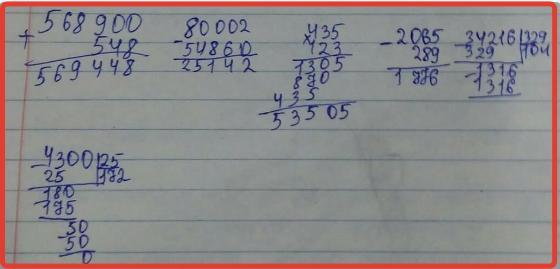 568900
+ 548
569448
80002
- 54860
25142
435
× 123
1305
870
435
53505
- 2065
289
1776
- 34216 | 329
329 | 104
- 1316
1316
- 4300 | 25
25 | 172
- 180
175
- 50
50
0